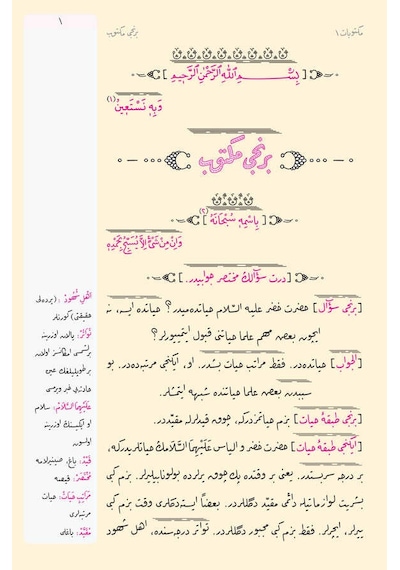 مكتوبات ١
برنجى مكتوب
١
بِسْمِ اللّٰهِ الرَّحْمٰنِ الرَّحِيمِ
وَبِهِ نَسْتَعِينُ (١)
برنجى مكتوب
[بِاسْمِهِ سُبْحَانَهُ] (٢)
وَاِنْ مِنْ شَيْءٍ اِلَّا يُسَبِّحُ بِحَمْدِهِ
[درت سؤالك مختصر جوابيدر.]
[برنجى سؤال] حضرت خضر عليه السلام حياتده ميدر؟ حياتده ايسه، نه
ايچون بعض مهم علما حياتنى قبول ايتميورلر؟
[الجواب] حياتده در. فقط مراتب حيات بشدر. او، ايكنجى مرتبه ده در. بو
سببدن بعض علما حياتنده شبهه ايتمشلر.
[برنجى طبقۀ حيات] بزم حياتمزدركه، چوق قيدلرله مقيّددر.
[ايكنجى طبقۀ حيات] حضرت خضر و الياس عَلَيْهِمَا السَّلَامك حياتلريدركه،
بر درجه سربستدر. يعنى بر وقتده پك چوق يرلرده بولونابيليرلر. بزم كبى
بشريت لوازماتيله دائمى مقيّد دگللردر. بعضًا ايسته دكلرى وقت بزم كبى
ييرلر، ايچرلر. فقط بزم كبى مجبور دگللردر. تواتر درجه سنده، اهل شهود
اَهْلِ شُهُودْ: (پرده لى
حقيقتى) كورنلر
تَوَاتُرْ: يالان اوزرينه
برلشمى امكانسز اولان
بر طوپليلغك عين
حادثه يى خبر ويرمسى
عَلَيْهِمَا السَّلَامْ: سلام
او ايكيسنك اوزرينه
اولسون
قَيْدْ: باغ، صينيرلامه
مُخْتَصَرْ: قيصه
مَرَاتِبِ حَيَاتْ: حيات
مرتبه لرى
مُقَيَّدْ: باغلى